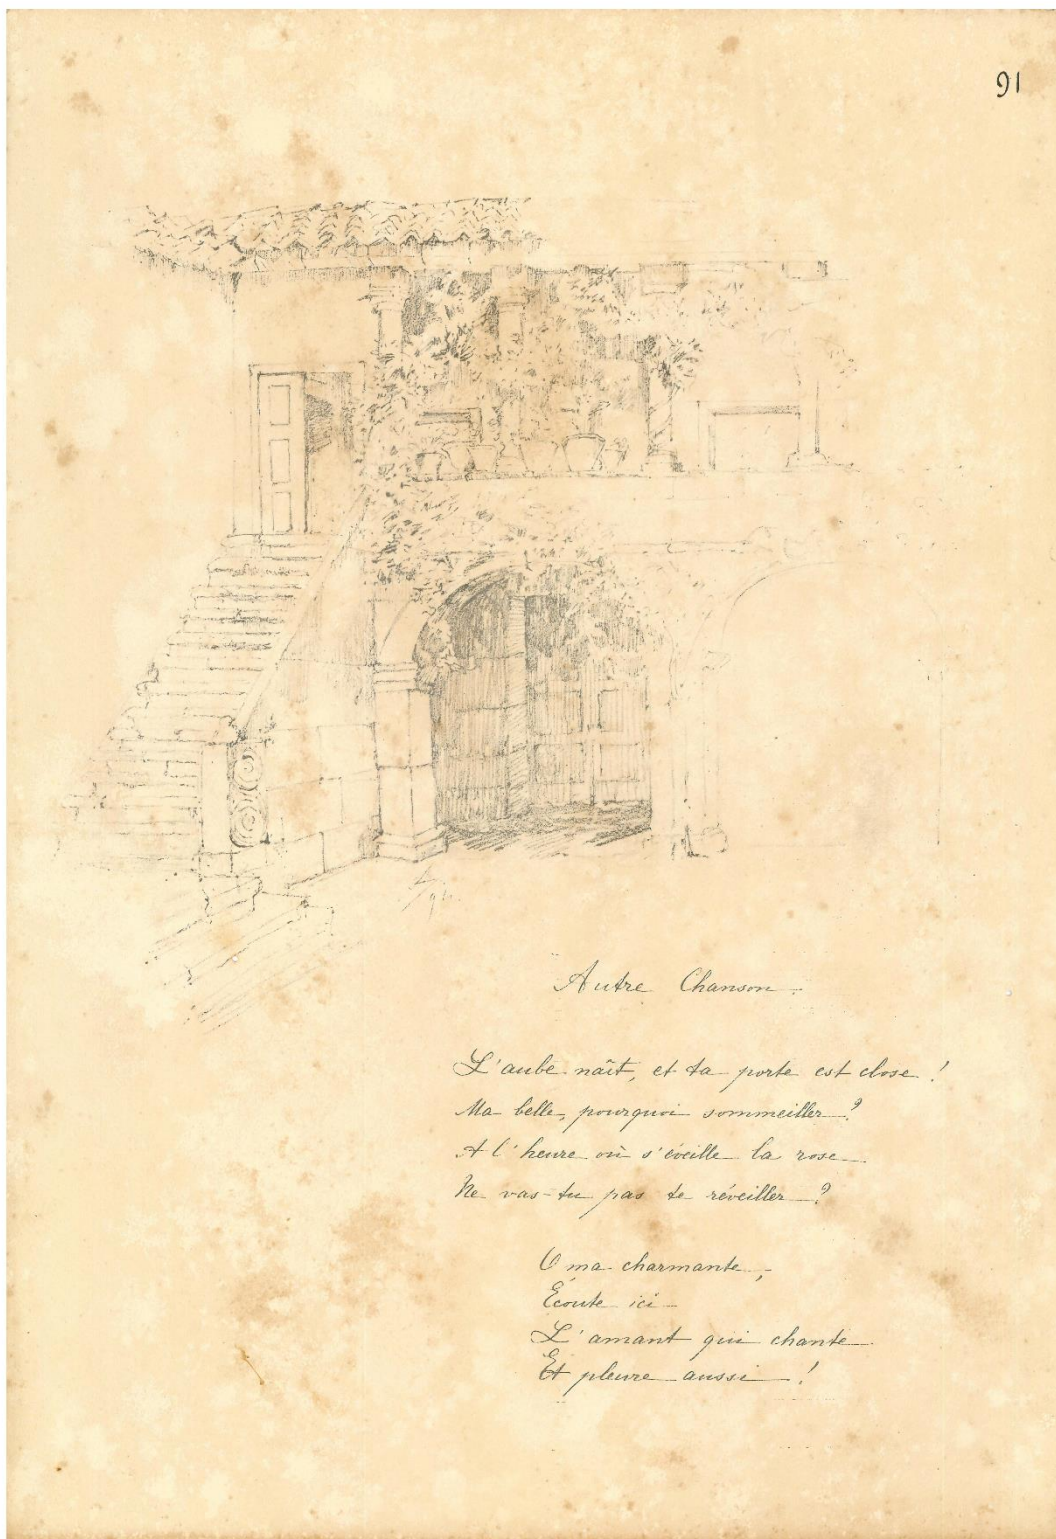 91
Autre Chanson.
L'aube naît, et ta porte est close !
Ma belle, pourquoi sommeiller ?
A l'heure où s'éveille la rose
Ne vas-tu pas te réveiller ?
O ma charmante,
Écoute ici
L'amant qui chante
Et pleure aussi !